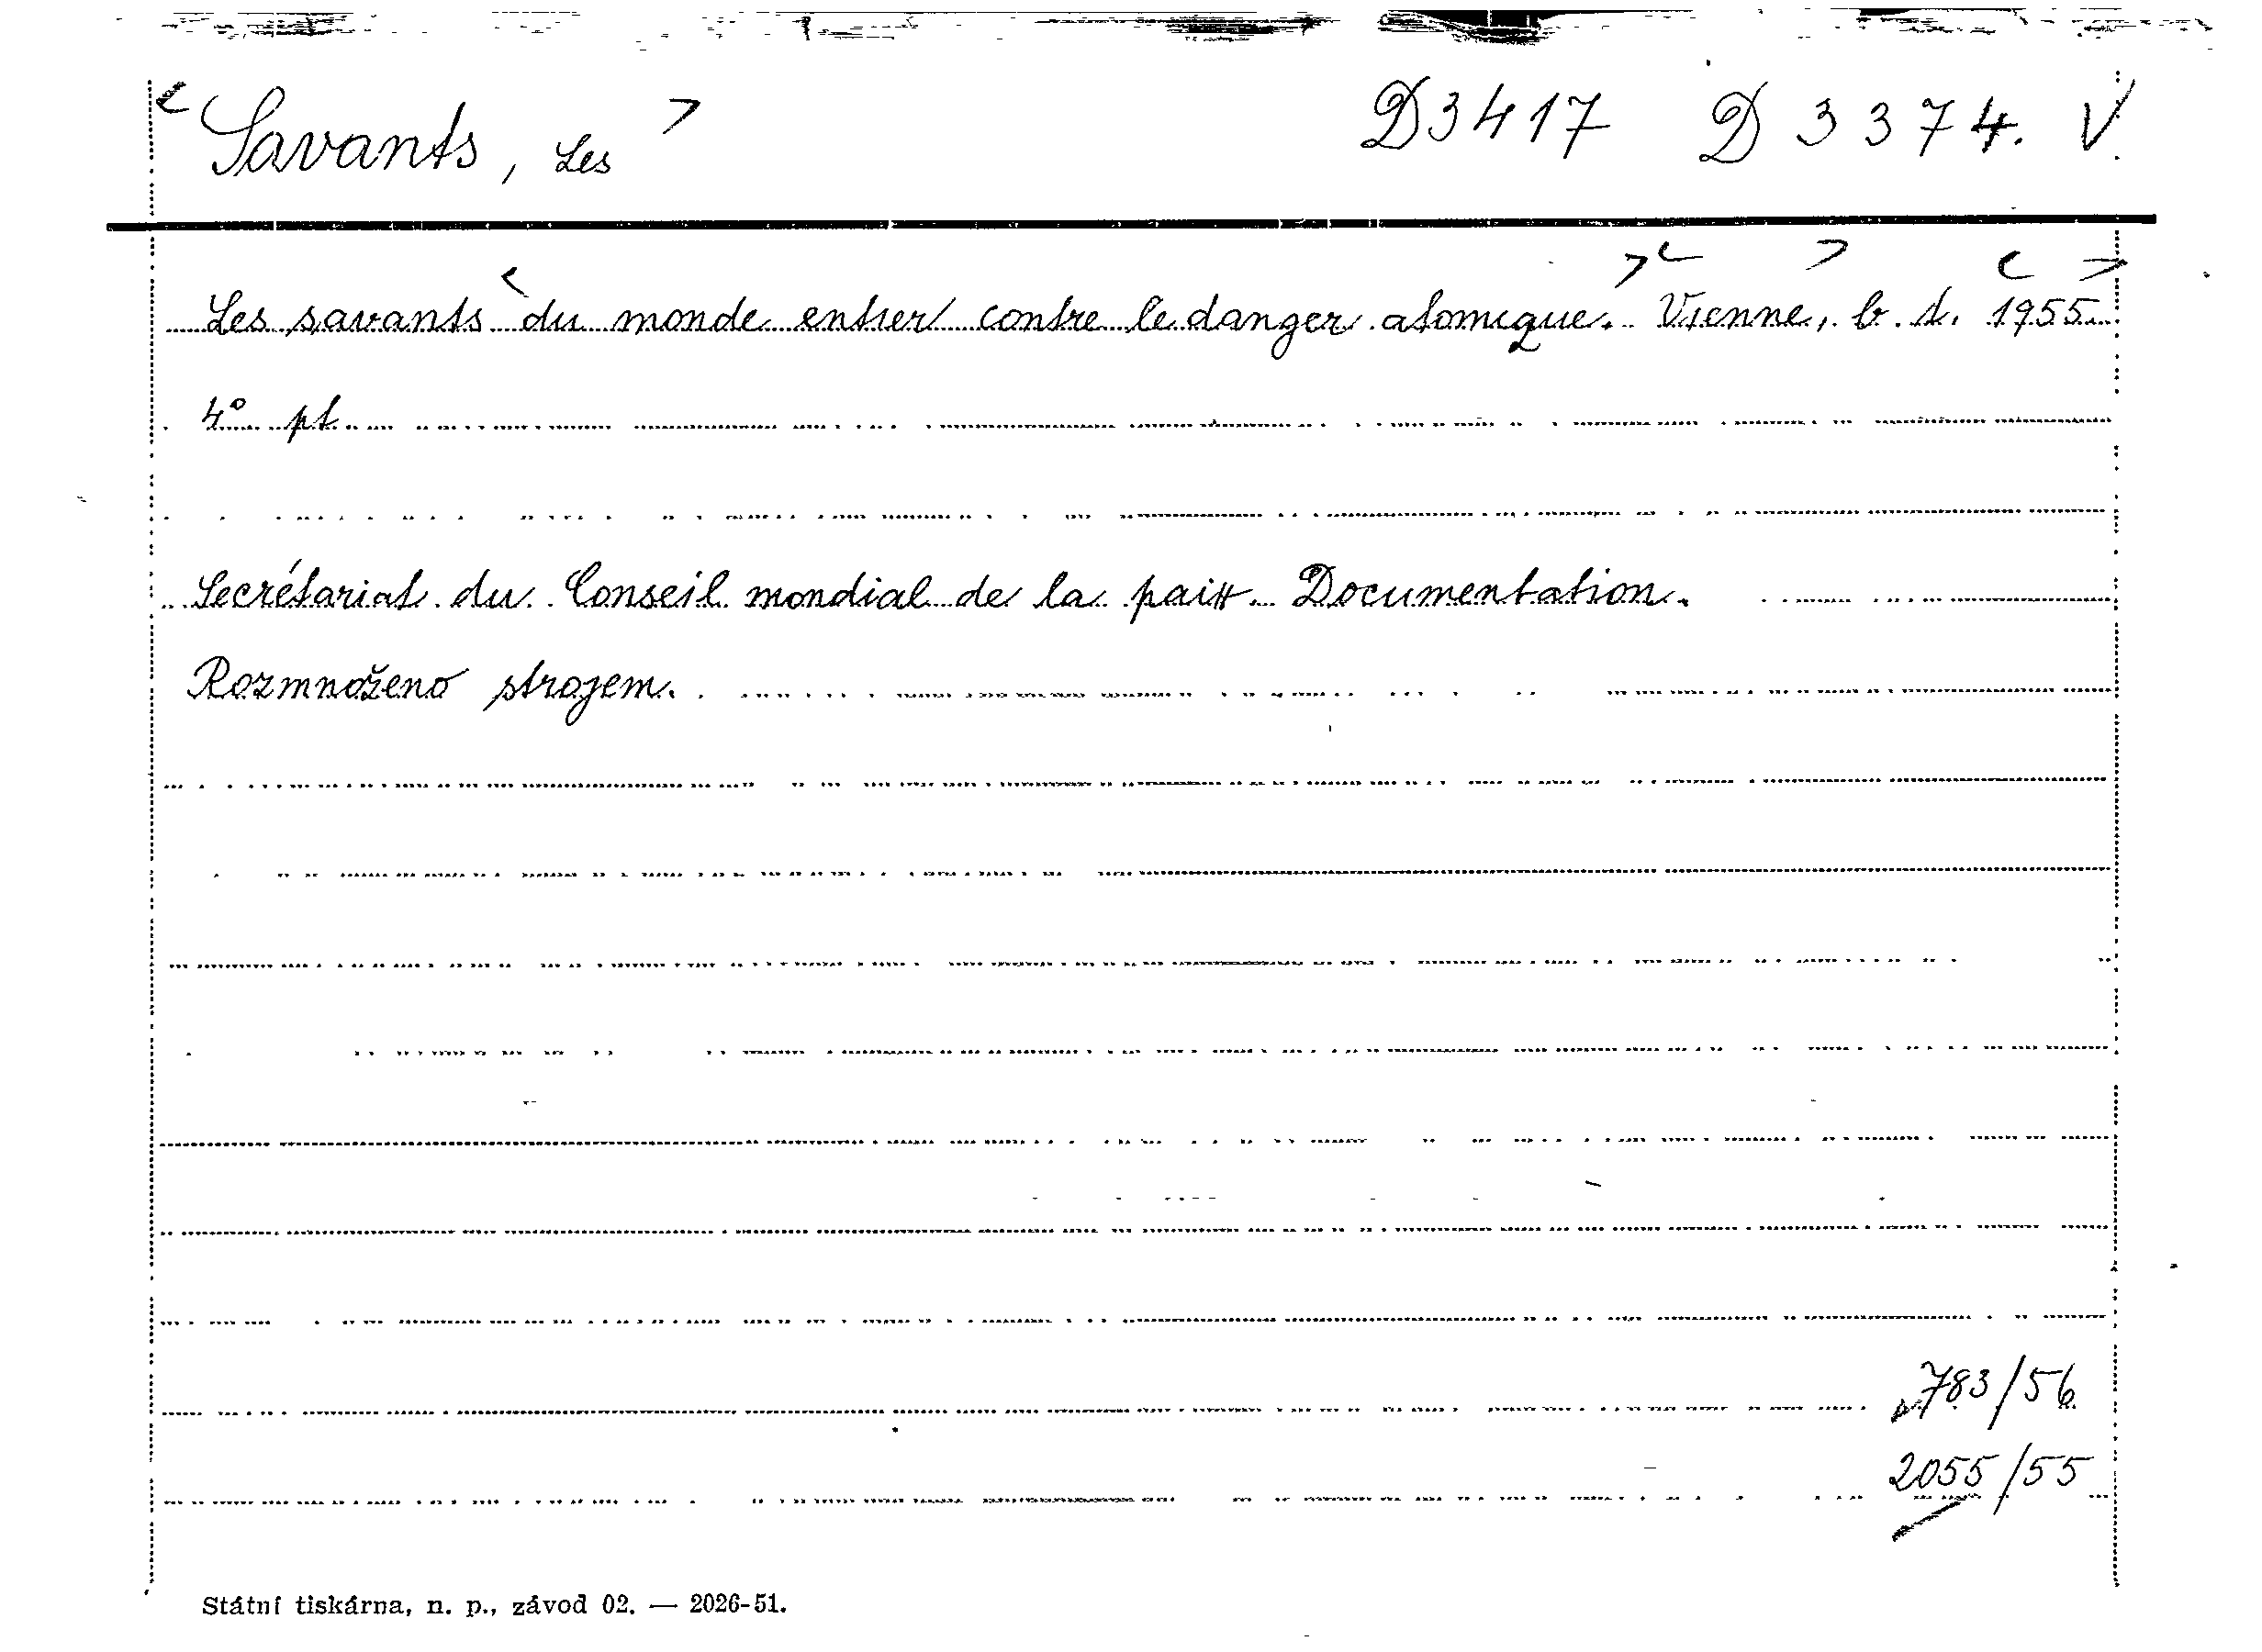 < Savants, Les > D3417 D 3374. V
Les savants < du monde entier contre le danger atomique. > < Vienne, > b. t. < 1955. >
4° pt.
Secrétariat du Conseil mondial de la paix. Documentation.
Rozmnoženo strojem.
783/56
2055/55
Státní tiskárna, n. p., závod 02. — 2026-51.